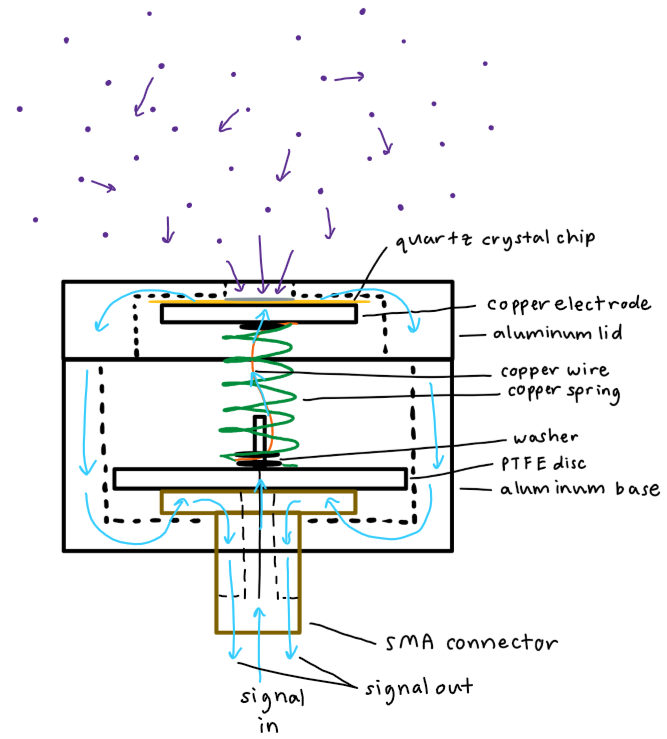 quartz crystal chip
copper electrode
aluminum lid
copper wire
copper spring
washer
PTFE disc
aluminum base
SMA connector
signal out
signal
in